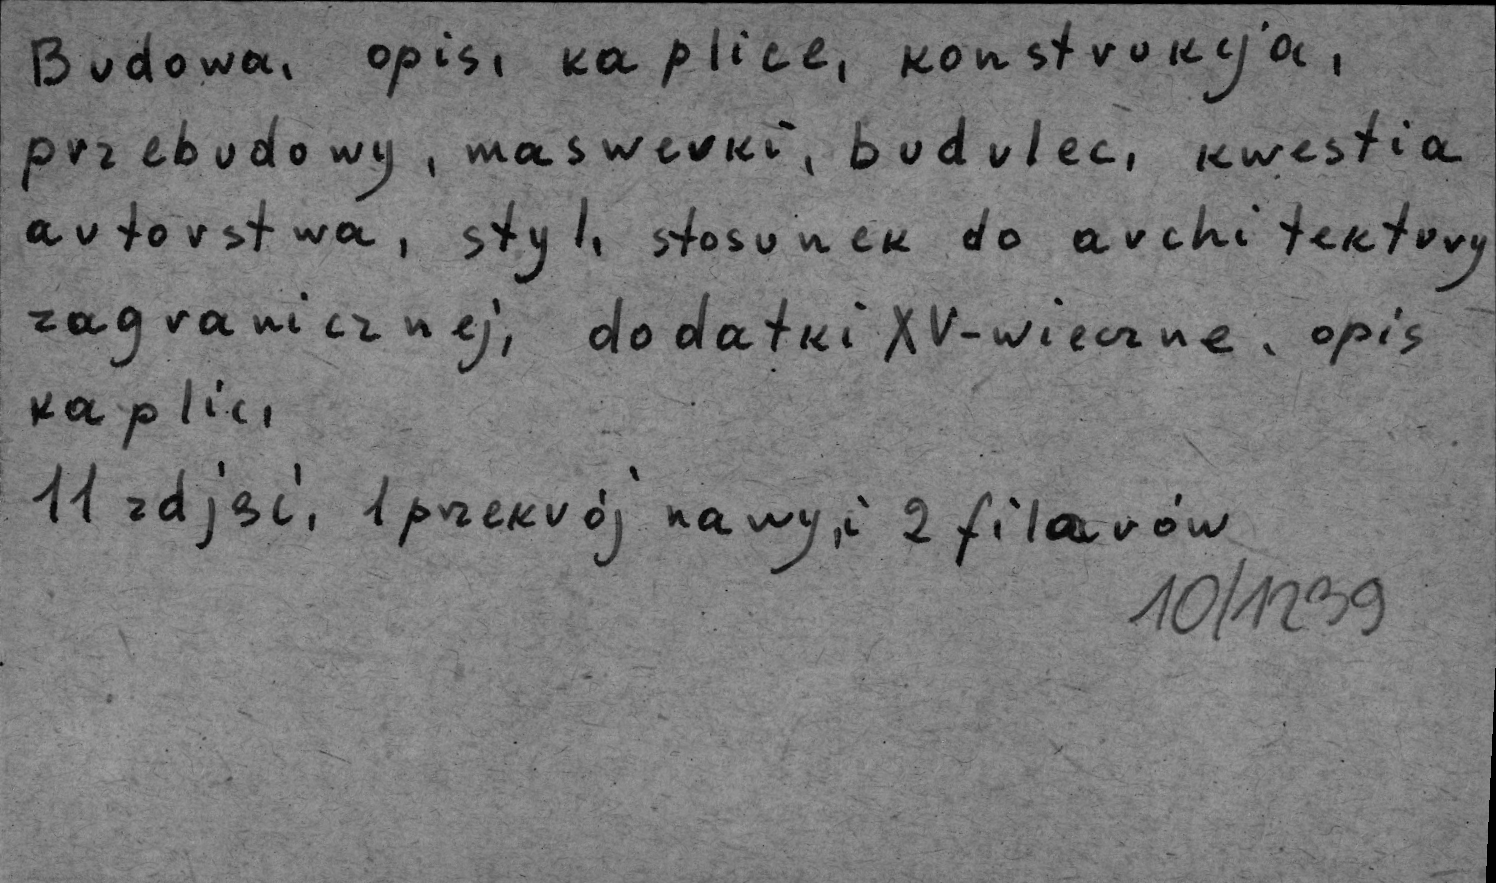 Budowa, opis, kaplice, konstrukcja,
przebudowy, maswerki, budulec, kwestia
autorstwa, styl, stosunek do architektury
zagranicznej, dodatki XV-wieczne, opis
kaplic,
11 zdjęć, 1 przekrój nawy, i 2 filarów
10/1239